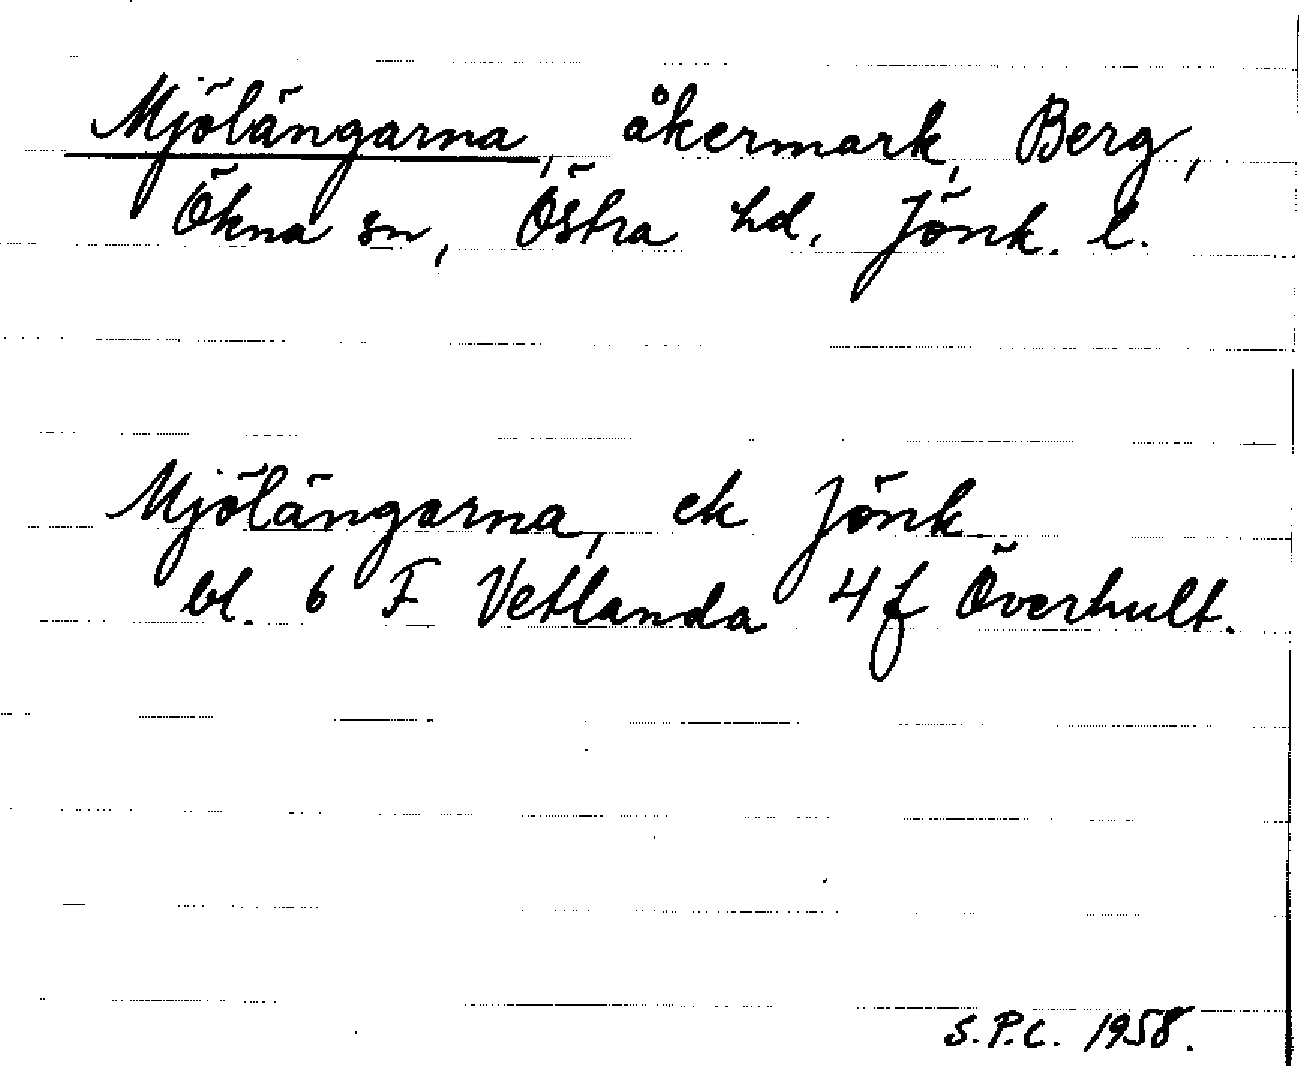 Mjölängarna, åkermark, Berg,
Ökna sn, Östra hd, Jönk. l.
Mjölängarna, ek Jönk.
bl. 6 F Vetlanda 4f Överhult.
S.P.C. 1958.